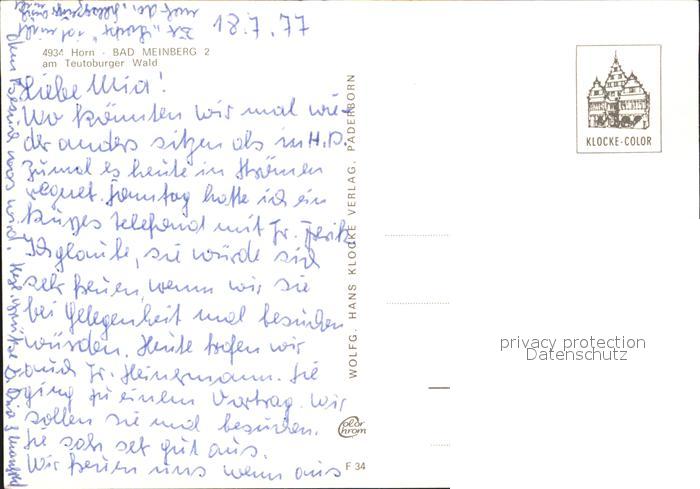 18.7.77
4934 Horn - BAD MEINBERG 2
am Teutoburger Wald
Liebe Mia!
Wo könnten wir mal wie-
der anders sitzen als in H.D.
Zumal es heute in Strömen
regnet. Sonntag hatte ich ein
kurzes Telefonat mit Fr.
Ich glaube, sie würde sich
sehr freuen, wenn wir sie
bei Gelegenheit mal besuchen
würden. Heute trafen wir
auch Fr. Heinermann. Sie
ging zu einem Vortrag. Wir
sollen sie mal besuchen.
Sie sah set gut aus.
Wir freuen uns wenn aus
dem was wird!
WOLFG. HANS KLOCKE VERLAG, PADERBORN
Color
chrom
F 34
KLOCKE-COLOR
privacy protection
Datenschutz